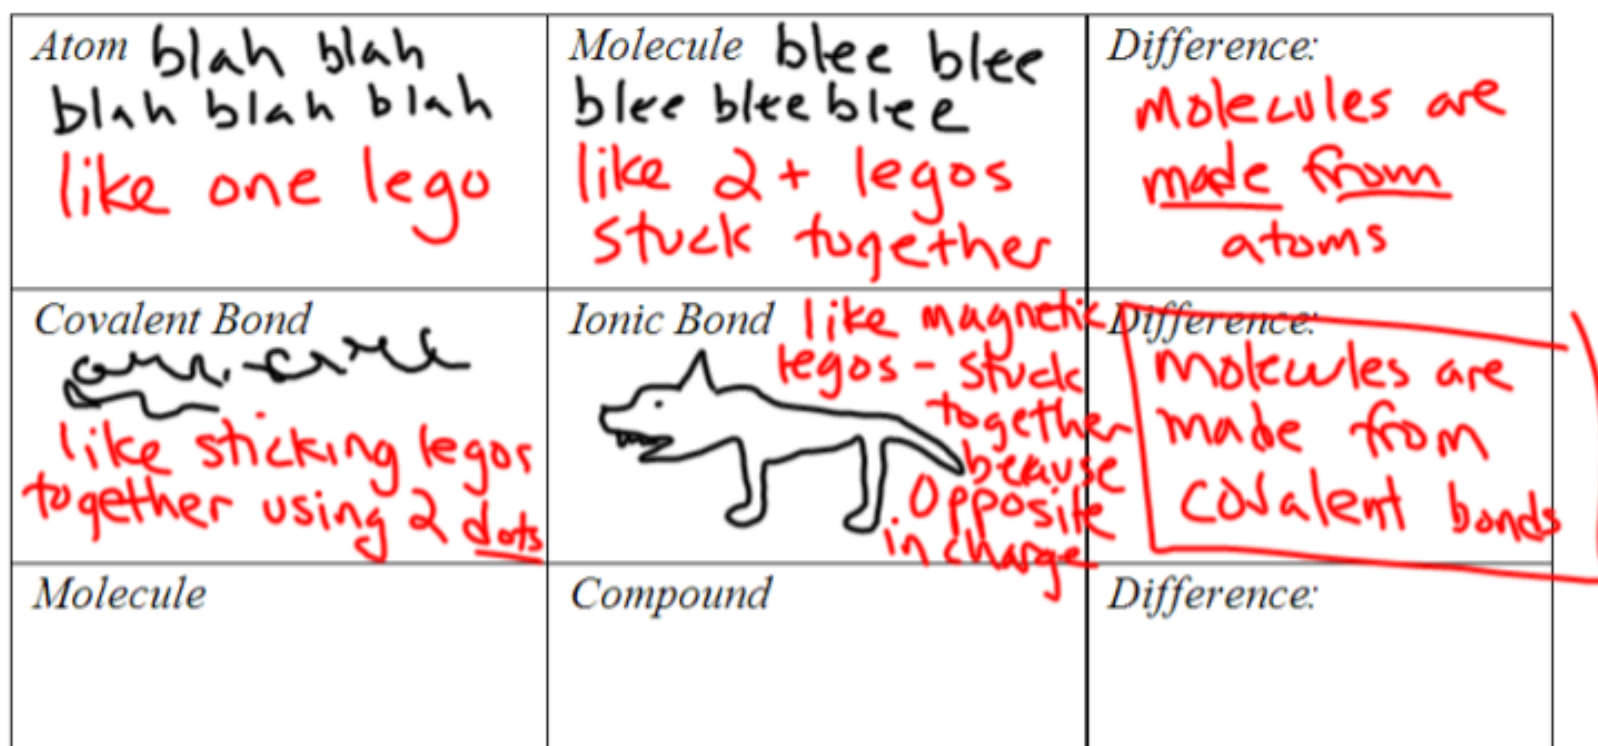 Atom blah blah
blah blah blah
like one lego
Molecule blee blee
blee blee blee
like 2+ legos
stuck together
Difference:
Molecules are
made from
atoms
Covalent Bond
like sticking legos
together using 2 dots
Ionic Bond like magnetic
legos - stuck
together
because
opposite
in charge
Difference:
molecules are
made from
covalent bonds
Molecule
Compound
Difference: